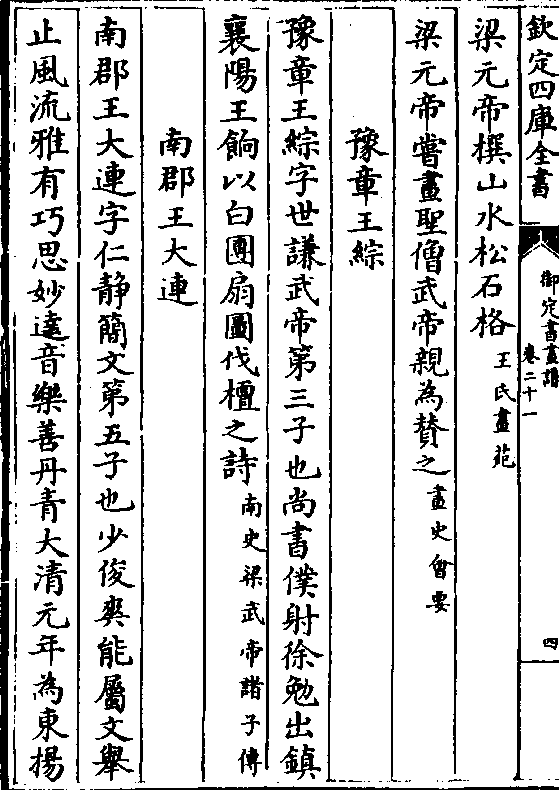 欽定四庫全書
御定書畫譜
卷二十一
四
梁元帝撰山水松石格王氏畫苑
梁元帝嘗畫聖僧武帝親為賛之畫史會要
豫章王綜
豫章王綜字世謙武帝第三子也尚書僕射徐勉出鎮
襄陽王餉以白團扇圖伐檀之詩南史梁武帝諸子傳
南郡王大連
南郡王大連字仁靜簡文第五子也少俊爽能屬文舉
止風流雅有巧思妙達音樂善丹青大清元年為東揚